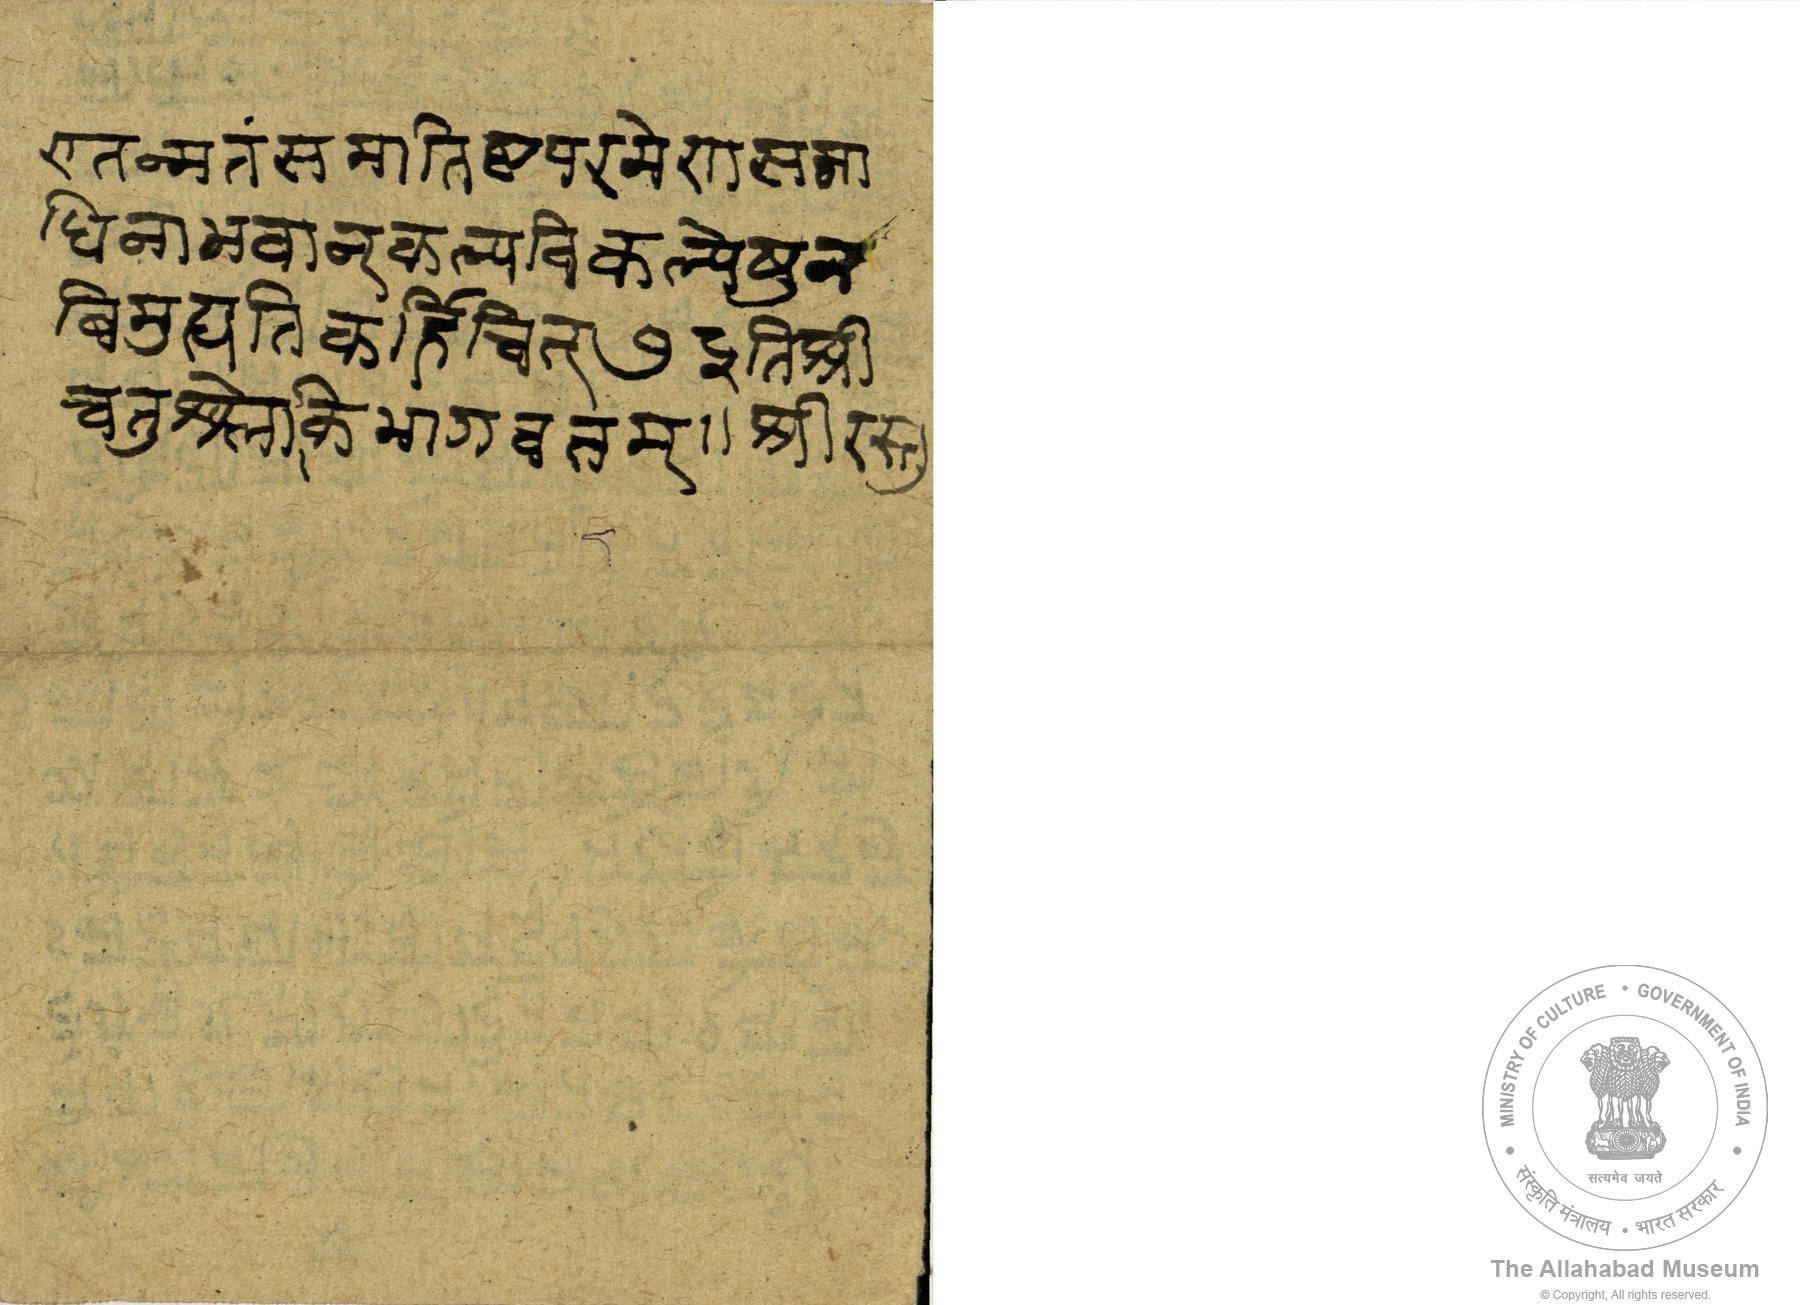 एतन्मतंसमातिष्टपरमेणसमा
धिनाभवान्कल्पविकल्पेषुन
विमुह्यतिकर्हिचित् ७ इतिश्री
चतुश्श्लोकिभागवतम् ॥ श्रीरस्तु
MINISTRY OF CULTURE • GOVERNMENT OF INDIA
सत्यमेव जयते
संस्कृति मंत्रालय • भारत सरकार
The Allahabad Museum
© Copyright, All rights reserved.